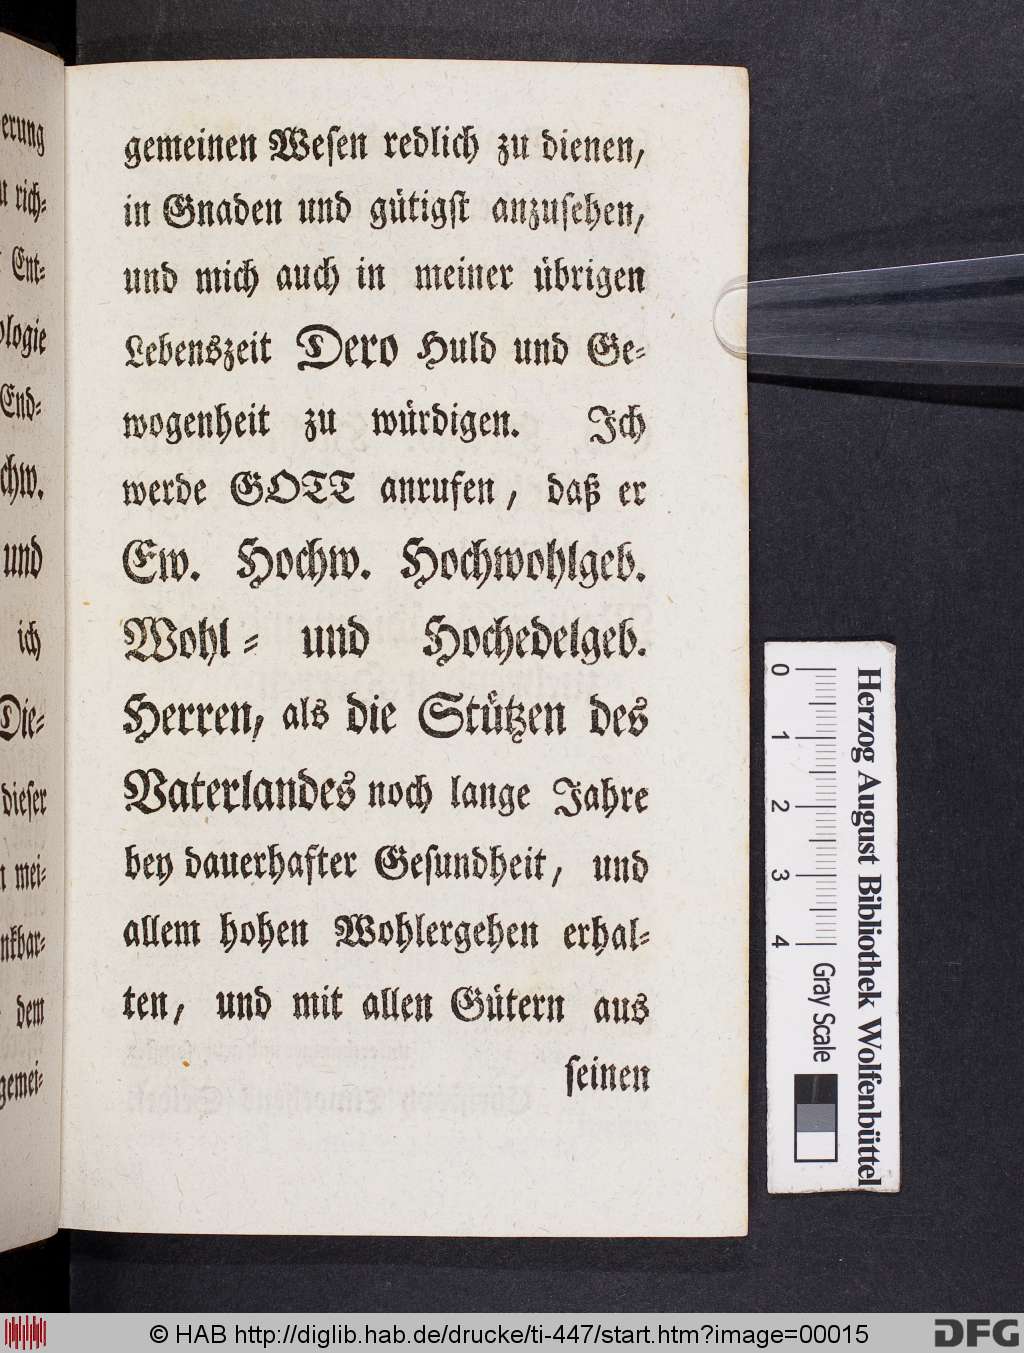 erung
u rich-
Ent-
ologie
End-
chw.
und
ich
Die-
dieser
n mei-
nkbar-
dem
gemei-
gemeinen Wesen redlich zu dienen,
in Gnaden und gütigst anzusehen,
und mich auch in meiner übrigen
Lebenszeit Dero Huld und Ge-
wogenheit zu würdigen. Ich
werde GOTT anrufen, daß er
Ew. Hochw. Hochwohlgeb.
Wohl- und Hochedelgeb.
Herren, als die Stützen des
Vaterlandes noch lange Jahre
bey dauerhafter Gesundheit, und
allem hohen Wohlergehen erhal-
ten, und mit allen Gütern aus
seinen
0 1 2 3 4 Gray Scale
Herzog August Bibliothek Wolfenbüttel
© HAB http://diglib.hab.de/drucke/ti-447/start.htm?image=00015
DFG